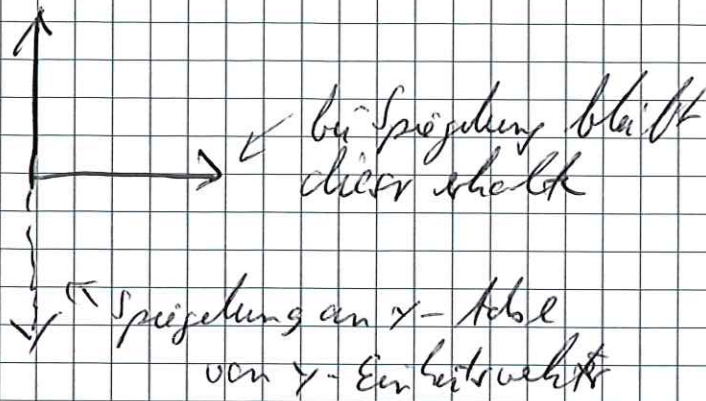 bei Spiegelung bleibt
dieser erhalten
Spiegelung an x-Achse
von y-Einheitsvektor